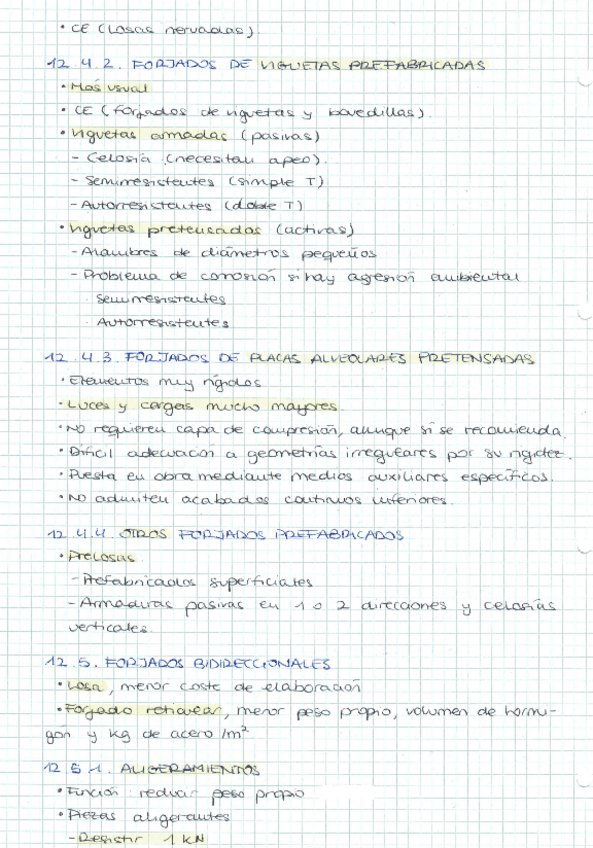 • CE (Losas nervadas).
12.4.2. FORJADOS DE VIGUETAS PREFABRICADAS
• Más usual
• CE (forjados de viguetas y bovedillas).
• Viguetas armadas (pasivas)
- Celosía (necesitan apeo).
- Semirresistentes (simple T)
- Autorresistentes (doble T)
• Viguetas pretensadas (activas)
- Alambres de diámetros pequeños
- Problema de corrosión si hay agresión ambiental
· Semirresistentes
· Autorresistentes
12.4.3. FORJADOS DE PLACAS ALVEOLARES PRETENSADAS
• Elementos muy rígidos
• Luces y cargas mucho mayores.
• No requieren capa de compresión, aunque si se recomienda.
• Difícil adecuación a geometrías irregulares por su rigidez.
• Puesta en obra mediante medios auxiliares específicos.
• No admiten acabados continuos inferiores.
12.4.4. OTROS FORJADOS PREFABRICADOS
• Prelosas
- Prefabricados superficiales
- Armaduras pasivas en 1 o 2 direcciones y celosías
verticales.
12.5. FORJADOS BIDIRECCIONALES
• Losa, menor coste de elaboración
• Forjado reticular, menor peso propio, volumen de hormi-
gón y kg de acero/m²
12.5.1. ALIGERAMIENTOS
• Función: reducir peso propio
• Piezas aligerantes
- Resistir 1 kN